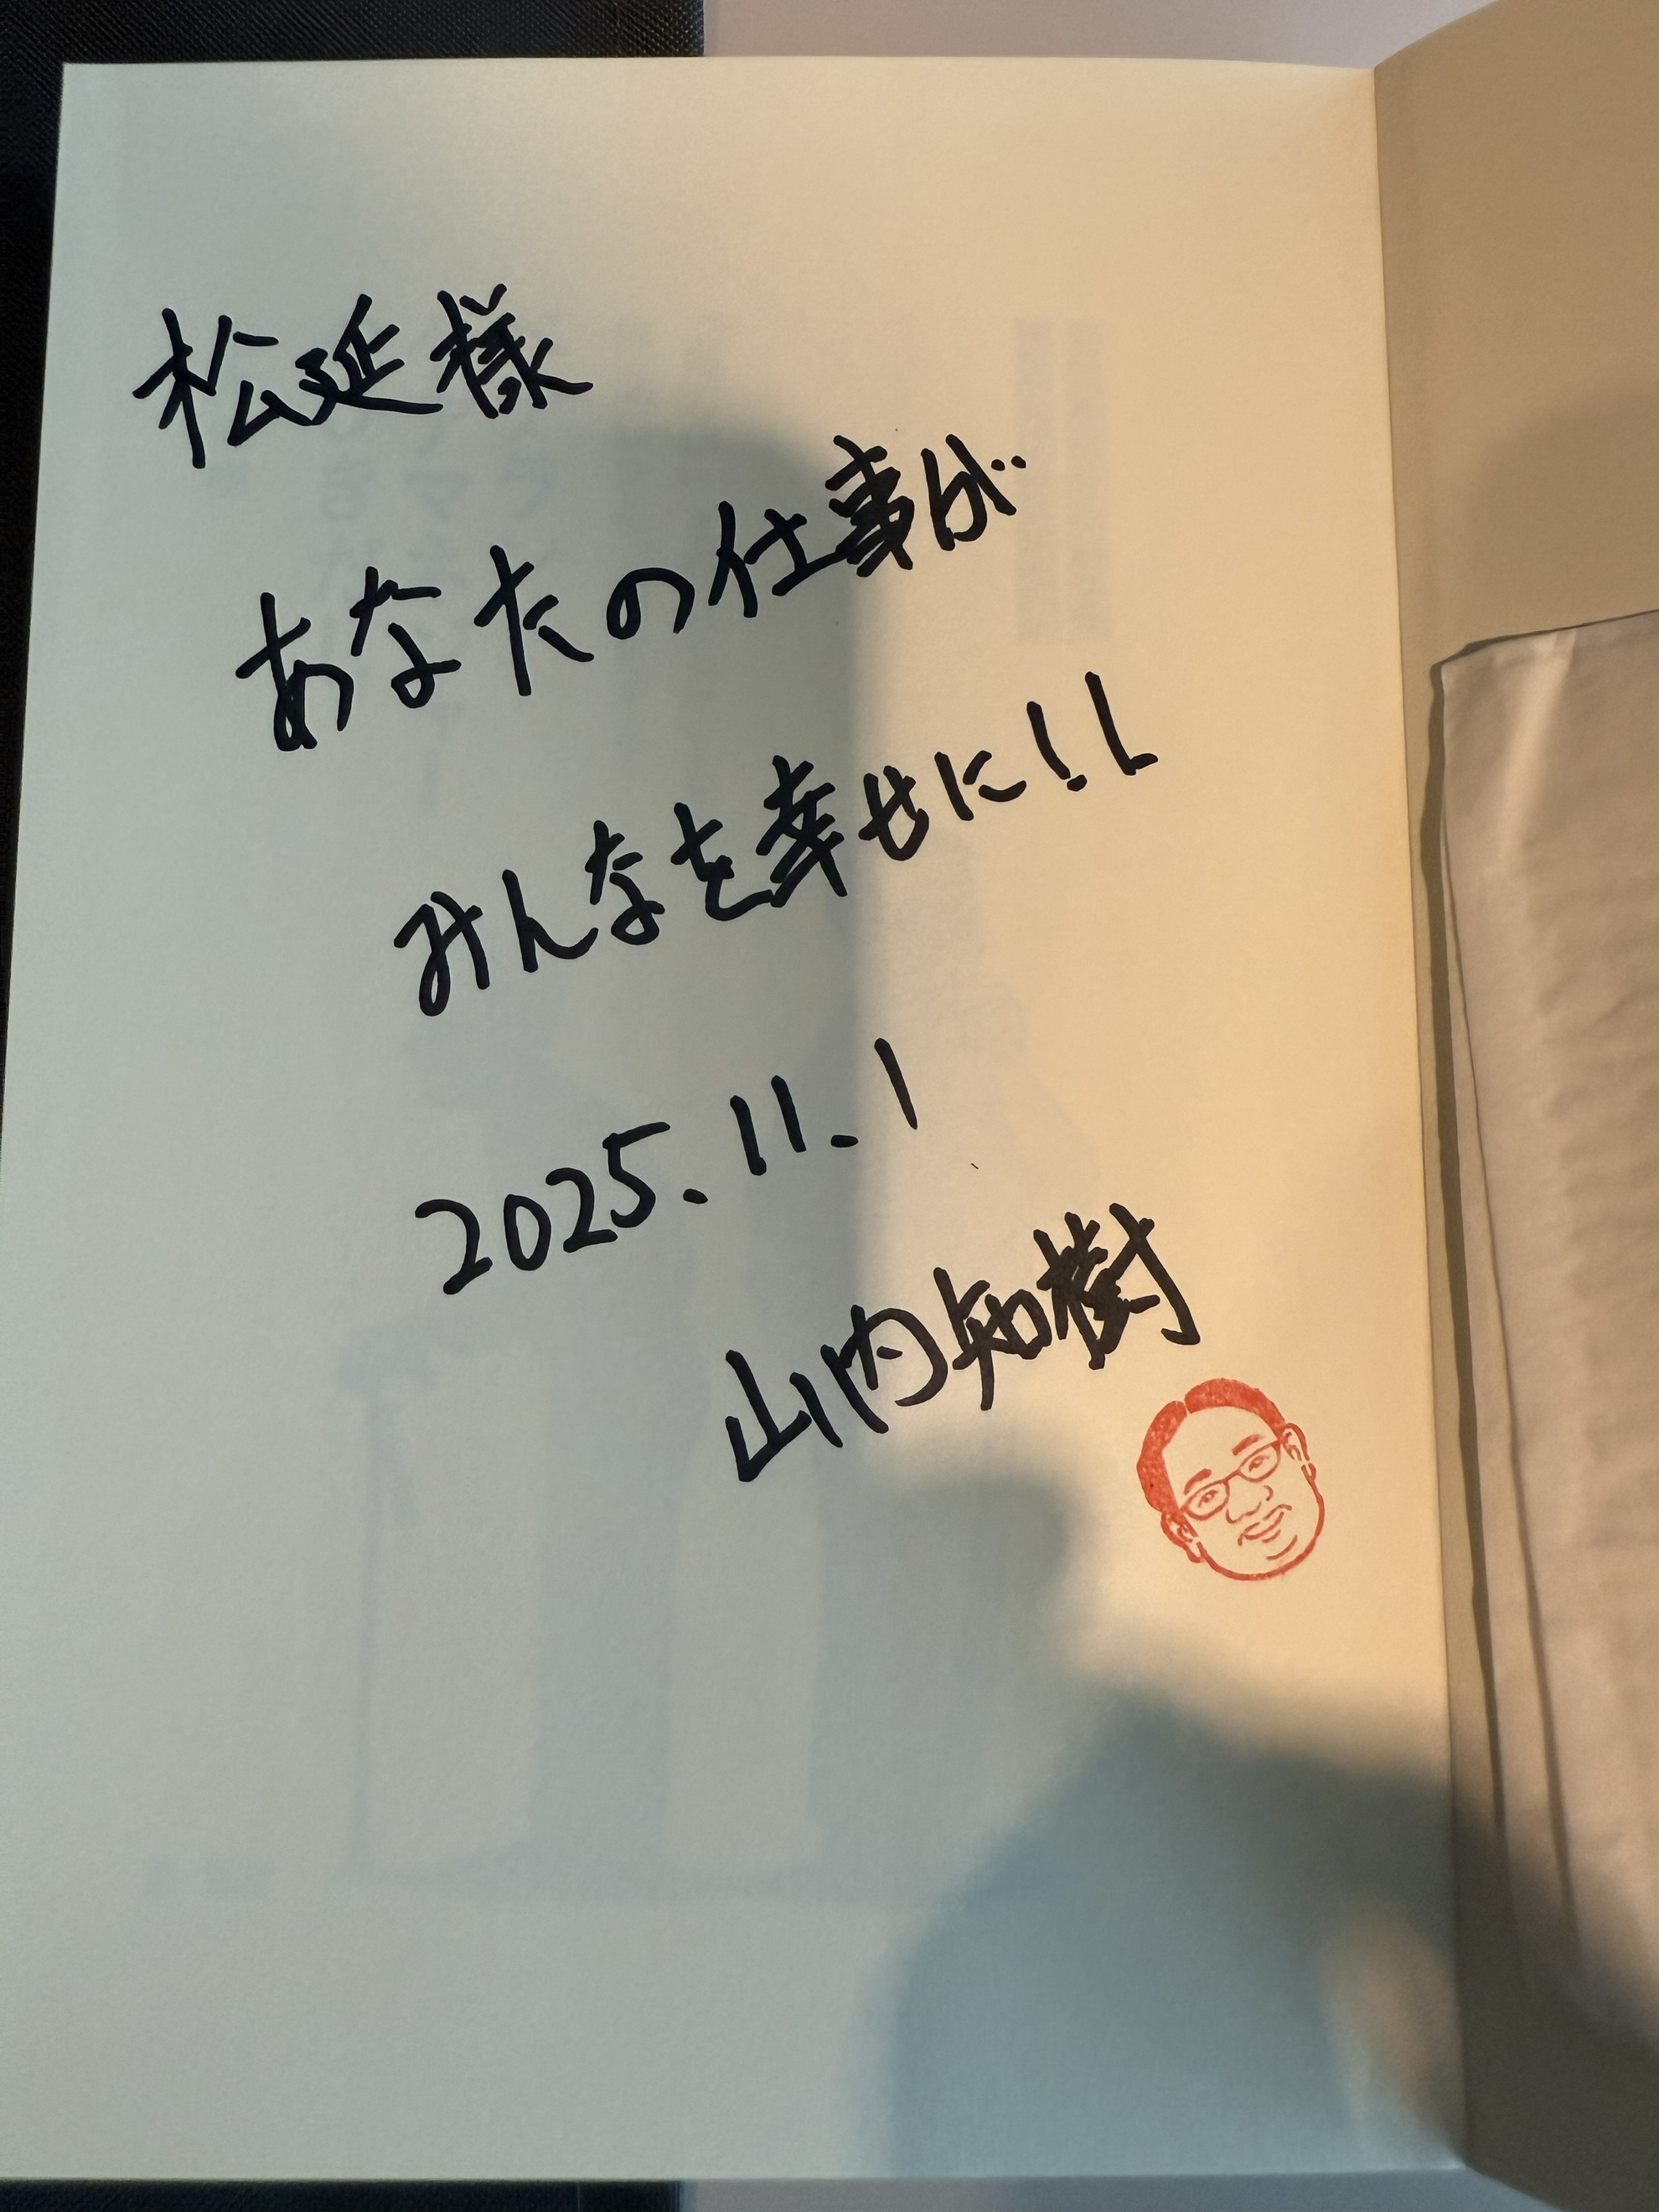 松延様
あなたの仕事が
みんなを幸せに!!
2025.11.1
山内知樹